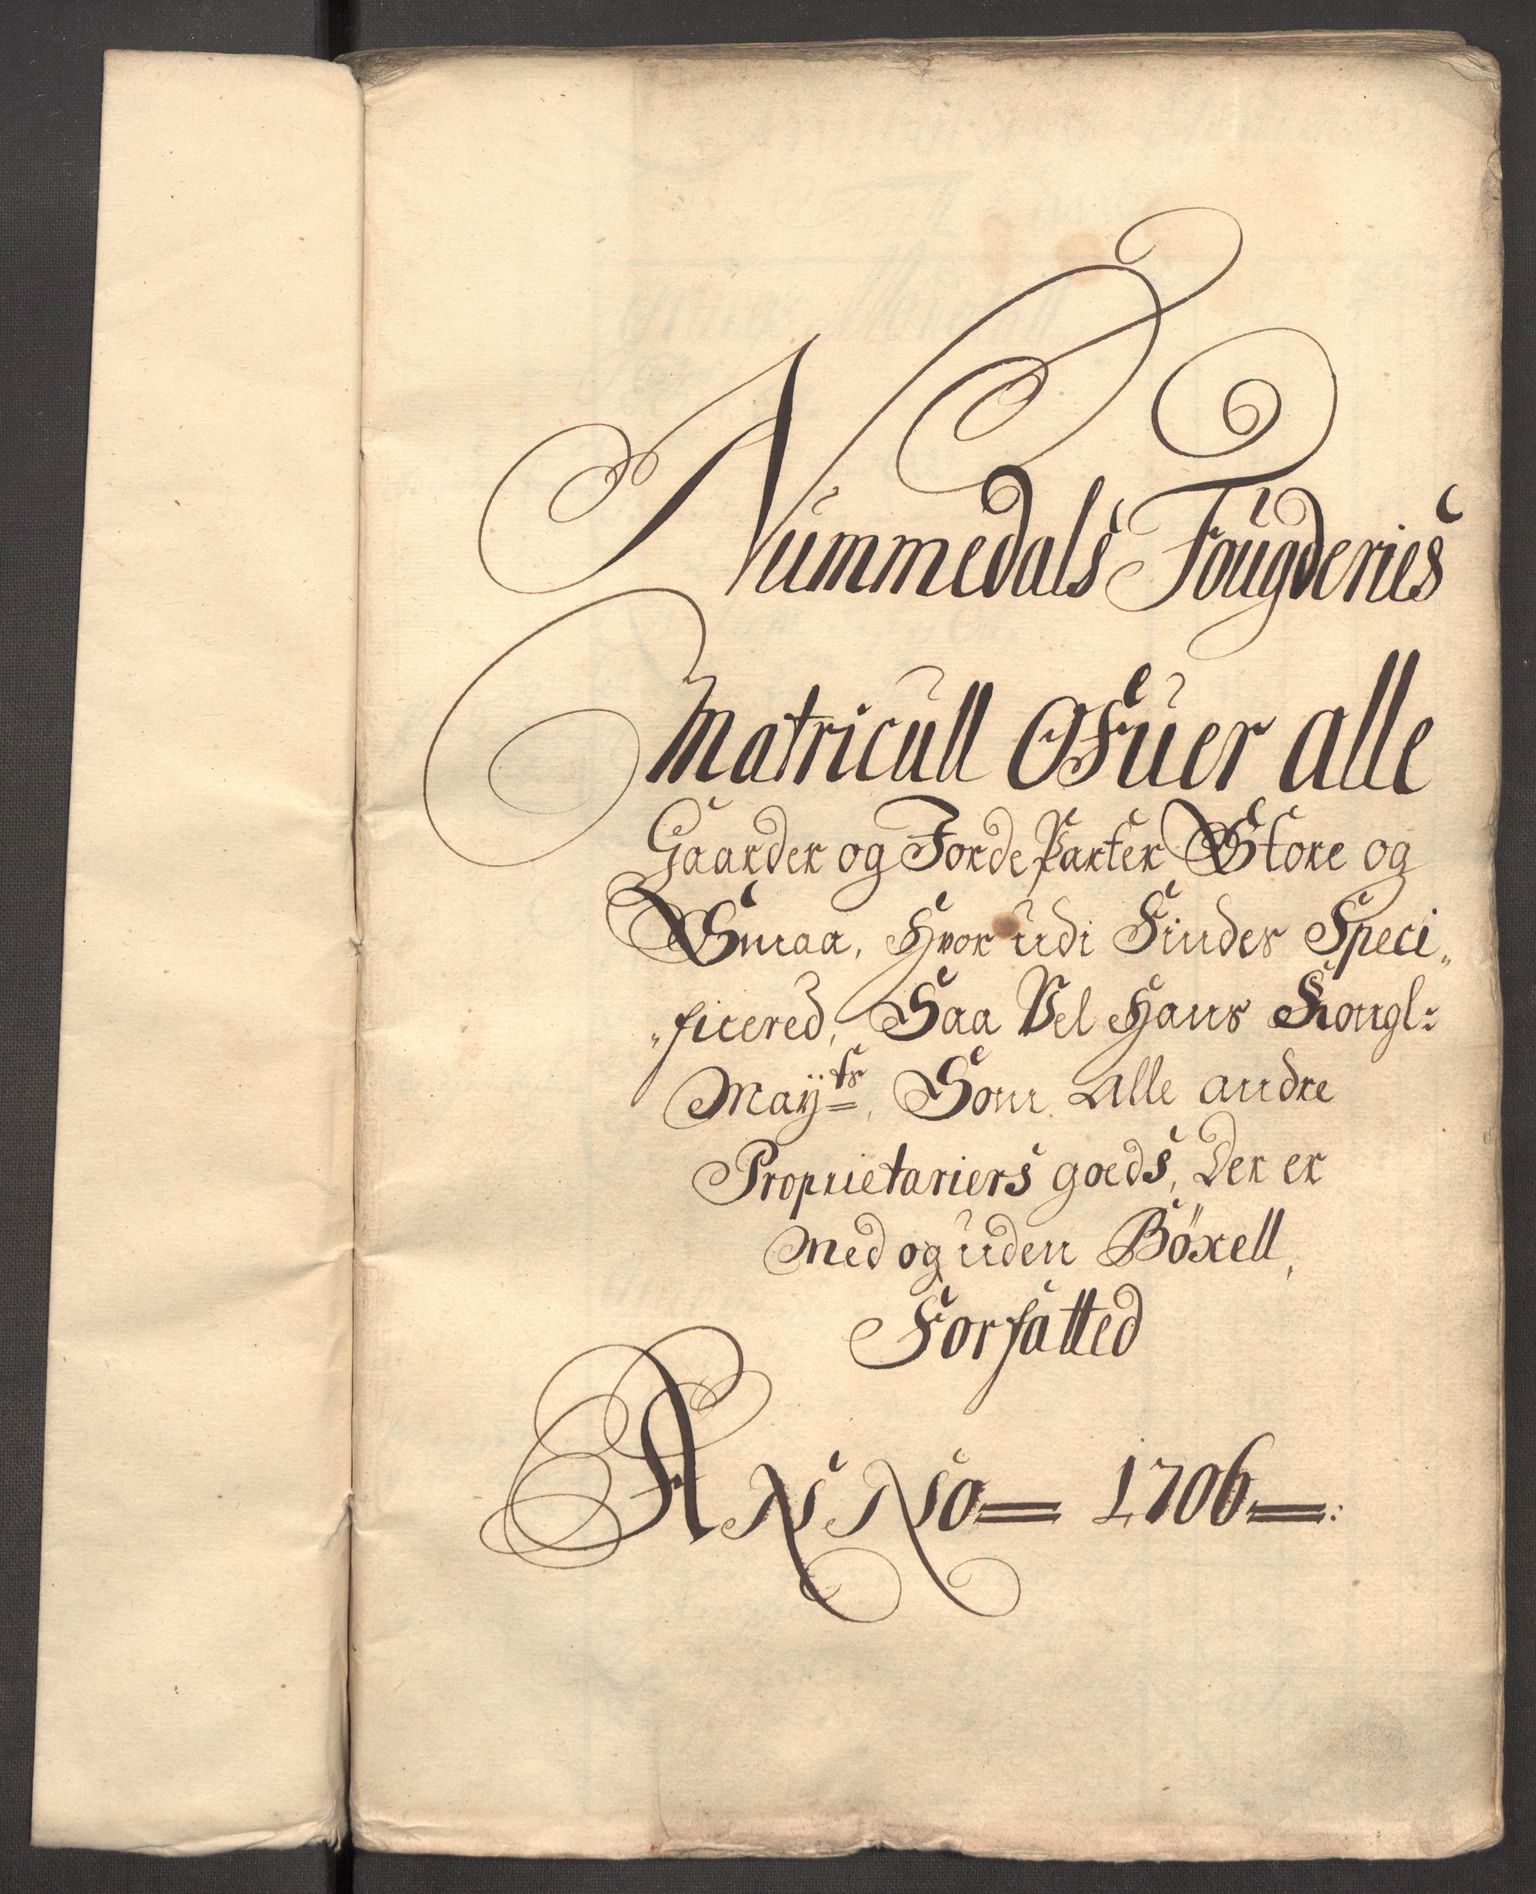 Nummedals Fougderies
Matricull Ofuer alle
Gaarder og Jorde Parter Store og
Smaa, Hvor udi Findes Speci„
„ficered, Saa Vel Hans Kongl:
Maÿts, Som Alle andre
Proprietariers goeds, Der er
Med og uden Böxell,
Forfatted
ANNo 1706